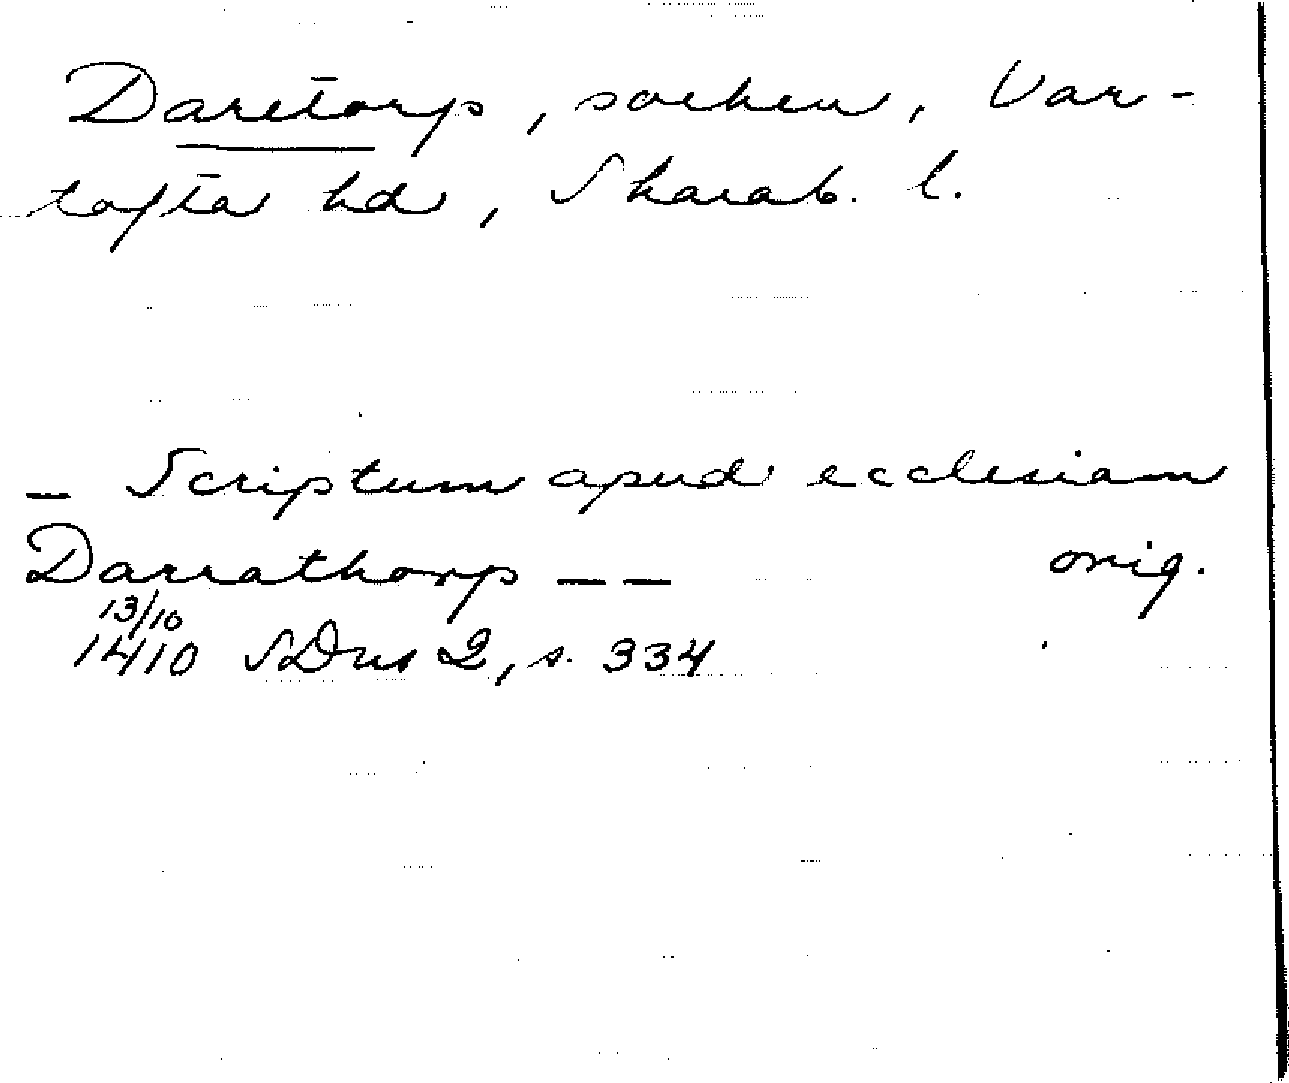 Daretorp, socken, Var-
tofta hd, Skarab. l.
– Scriptum apud ecclesiam
Darrathorp – – orig.
13/10
1410 SDns 2, s. 334